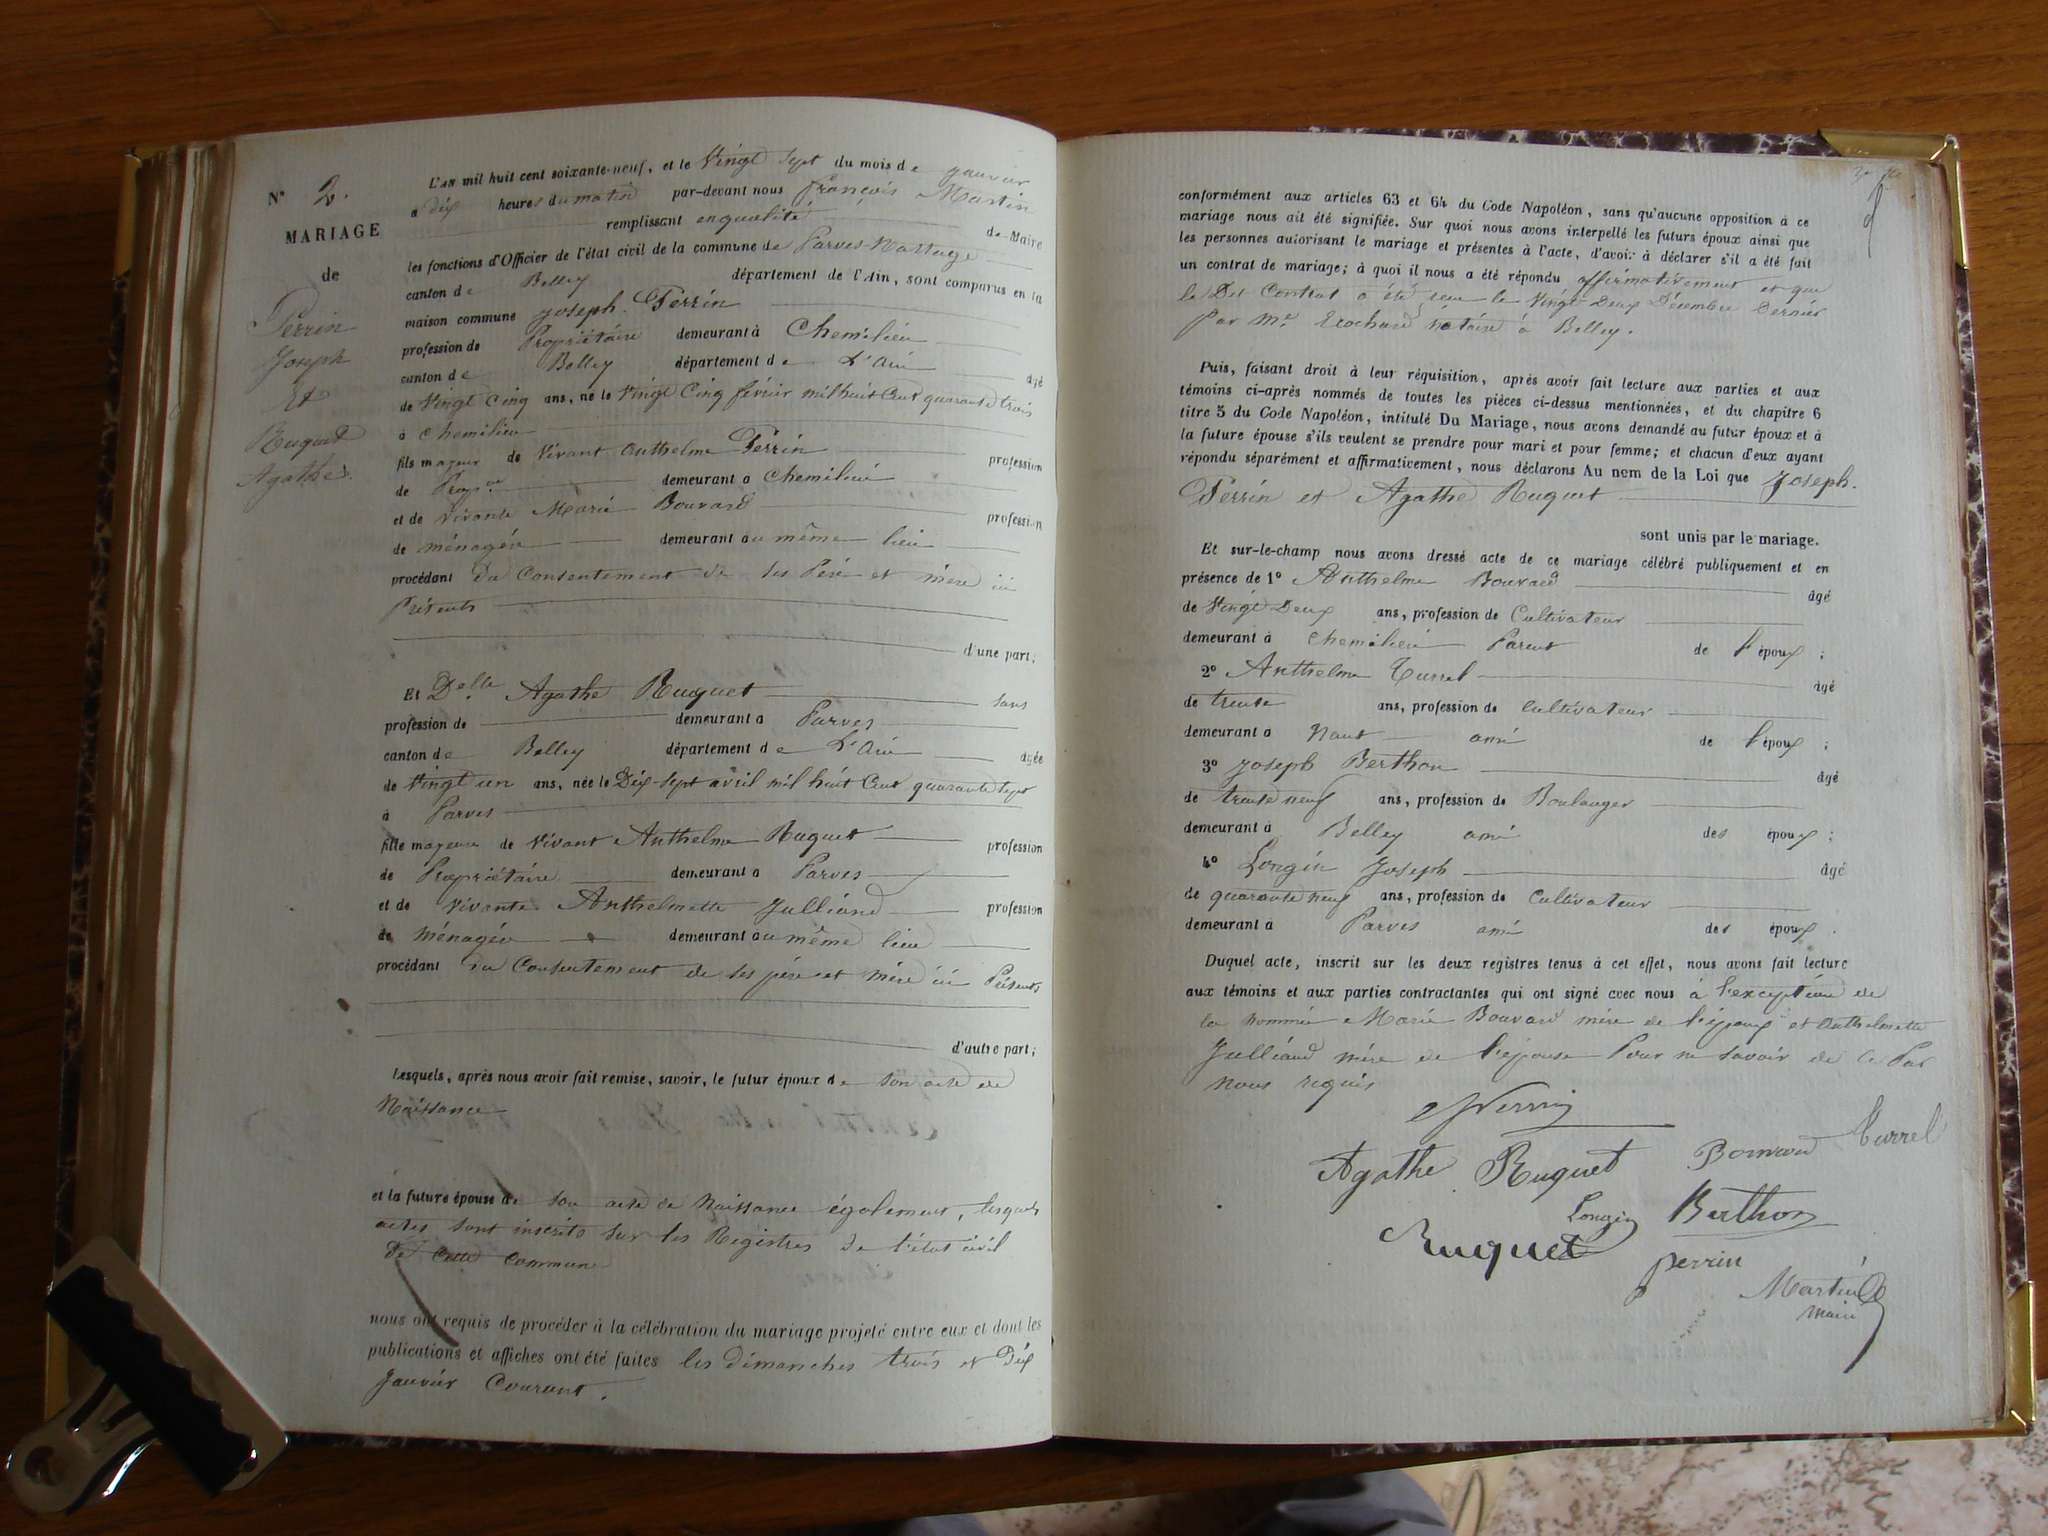 N° 2.
MARIAGE
de
Perrin
Joseph
Et
Ruguet
Agathe.
L'AN mil huit cent soixante-neuf, et le Vingt Sept du mois de janvier
a dix heures du matin par-devant nous françois Martin
remplissant en qualité de Maire
les fonctions d'Officier de l'état civil de la commune de Parves-Nattage
canton de Belley département de l'Ain, sont comparus en la
maison commune Joseph Perrin
profession de Propriétaire demeurant à Chemilieu
canton de Belley département de L'Ain âgé
de Vingt Cinq ans, né le Vingt Cinq février mil huit Cent quarante trois
à Chemilieu
fils majeur de Vivant Anthelme Perrin profession
de Prop.re demeurant a Chemilieu
et de vivante Marie Bouvard profession
de ménagère demeurant au même lieu
procédant du Consentement de ses Père et mère ici
Présents
d'une part;
Et Delle Agathe Ruguet sans
profession de demeurant a Parves
canton de Belley département de L'Ain âgée
de Vingt un ans, née le Dix-Sept avril mil huit Cent quarante Sept
à Parves
fille majeure de Vivant Anthelme Ruguet profession
de Propriétaire demeurant a Parves
et de vivante Anthelmette Julliand profession
de ménagère demeurant au même lieu
procédant du Consentement de ses père et mère ici Présents
d'autre part;
Lesquels, après nous avoir fait remise, savoir, le futur époux de son acte de
Naissance
et la future épouse de son acte de Naissance également, lesquels
actes sont inscrits sur les Registres de l'état civil
de Cette Commune
nous ont requis de procéder à la célébration du mariage projeté entre eux et dont les
publications et affiches ont été faites les dimanches trois et Dix
Janvier Courant.
conformément aux articles 63 et 64 du Code Napoléon, sans qu'aucune opposition à ce
mariage nous ait été signifiée. Sur quoi nous avons interpellé les futurs époux ainsi que
les personnes autorisant le mariage et présentes à l'acte, d'avoir à déclarer s'il a été fait
un contrat de mariage; à quoi il nous a été répondu affirmativement et que
le Dit Contrat a été reçu le Vingt Deux Décembre Dernier
par Me notaire à Belley.
Puis, faisant droit à leur réquisition, après avoir fait lecture aux parties et aux
témoins ci-après nommés de toutes les pièces ci-dessus mentionnées, et du chapitre 6
titre 5 du Code Napoléon, intitulé Du Mariage, nous avons demandé au futur époux et à
la future épouse s'ils veulent se prendre pour mari et pour femme; et chacun d'eux ayant
répondu séparément et affirmativement, nous déclarons Au nom de la Loi que Joseph
Perrin et Agathe Ruguet
sont unis par le mariage.
Et sur-le-champ nous avons dressé acte de ce mariage célébré publiquement et en
présence de 1° Anthelme Bouvard âgé
de Vingt Deux ans, profession de Cultivateur
demeurant à Chemilieu Parent de l'époux ;
2° Anthelme Turrel âgé
de trente ans, profession de Cultivateur
demeurant à Nant ami de l'époux ;
3° Joseph Berthon âgé
de trente neuf ans, profession de Boulanger
demeurant à Belley ami des époux ;
4° Longin Joseph âgé
de quarante neuf ans, profession de Cultivateur
demeurant à Parves ami des époux.
Duquel acte, inscrit sur les deux registres tenus à cet effet, nous avons fait lecture
aux témoins et aux parties contractantes qui ont signé avec nous à l'exception de
la nommée Marie Bouvard mère de l'époux et Anthelmette
Julliand mère de l'épouse Pour ne savoir de ce Par
nous requis
Perrin
Agathe Ruguet Bouvard Turrel
Longin Berthon
Ruguet
perrin
Martin
Maire